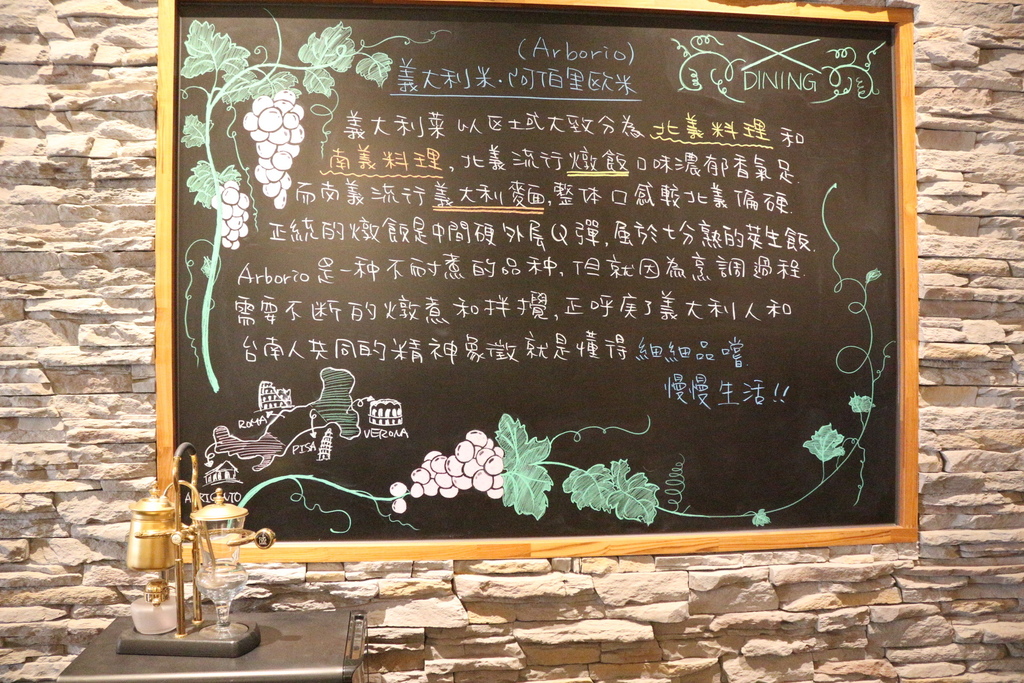 (Arborio)
義大利米·阿伯里歐米
DINING
義大利菜以区土或大致分為北義料理和
南義料理,北義流行燉飯口味濃郁香氣足.
而南義流行義大利麵,整体口感較北義偏硬.
正統的燉飯是中間硬外层Q彈,屬於七分熟的英生飯.
Arborio是一种不耐煮的品种,但就因為烹調過程.
需要不断的燉煮和拌攪,正呼应了義大利人和
台南人共同的精神象徵就是懂得細細品嚐.
慢慢生活!!
ROMA
VERONA
PISA
AGRIGENTO